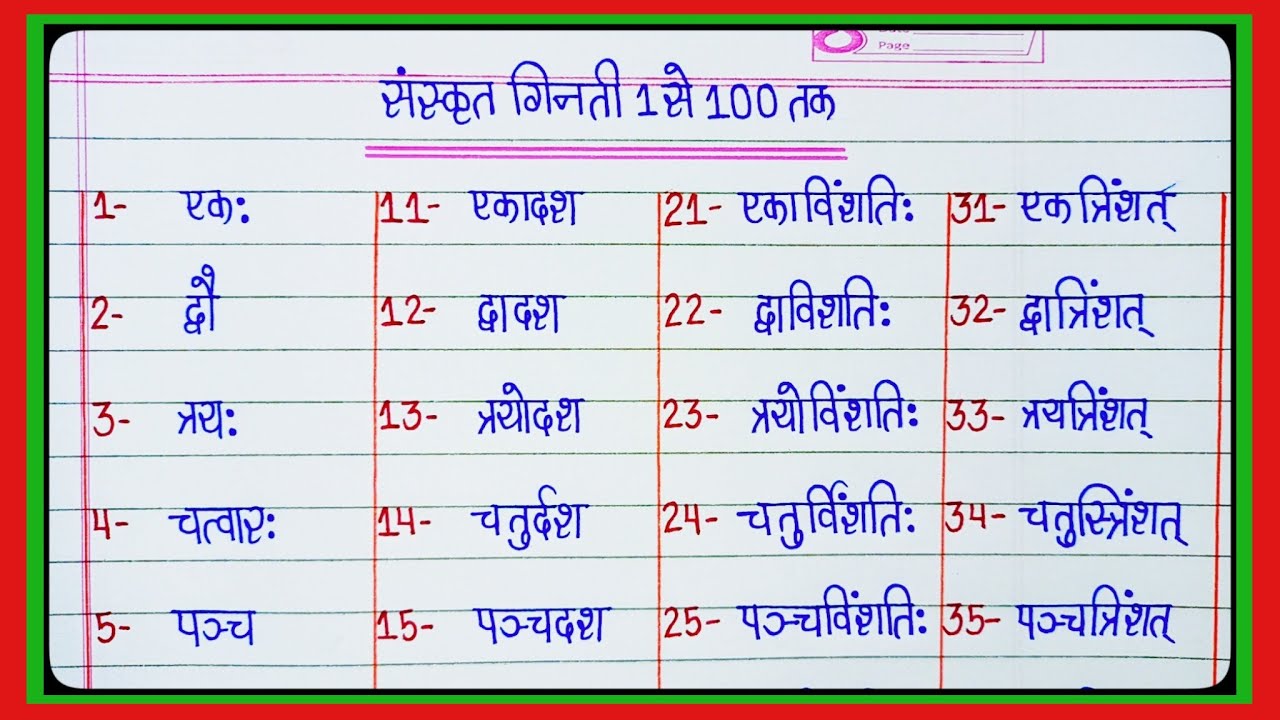 Page
संस्कृत गिनती 1 से 100 तक
1- एक: 11- एकादश 21- एकाविंशति: 31- एकत्रिंशत्
2- द्वौ 12- द्वादश 22- द्वाविशति: 32- द्वात्रिंशत्
3- त्रय: 13- त्रयोदश 23- त्रयोविंशति: 33- त्रयत्रिंशत्
4- चत्वार: 14- चतुर्दश 24- चतुर्विंशति: 34- चतुस्त्रिंशत्
5- पञ्च 15- पञ्चदश 25- पञ्चविंशति: 35- पञ्चत्रिंशत्